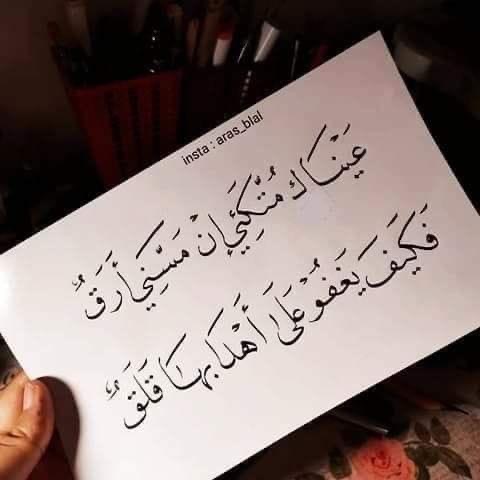 insta : aras_blal
عَيْنَاك مُتَّكَئِي إنْ مَسَّنِي أَرَقٌ
فَكَيْفَ يَغْفُو عَلَى أَهْدَابِهَا قَلَقٌ